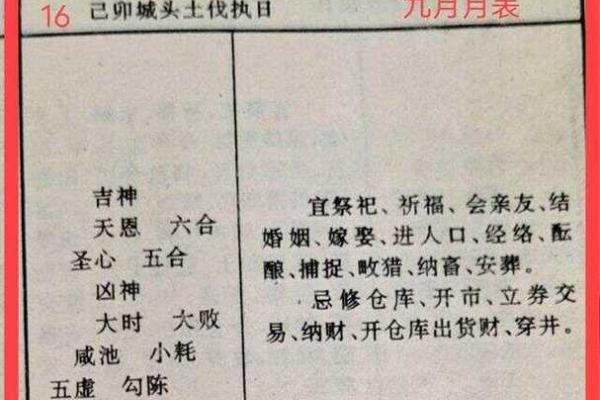 16
己卯城头土伐执日
九月月表
吉神
天恩 六合
圣心 五合
凶神
大时 大败
咸池 小耗
五虚 勾陈
宜祭祀、祈福、会亲友、结
婚姻、嫁娶、进人口、经络、酝
酿、捕捉、畋猎、纳畜、安葬。
忌修仓库、开市、立券交
易、纳财、开仓库出货财、穿井。